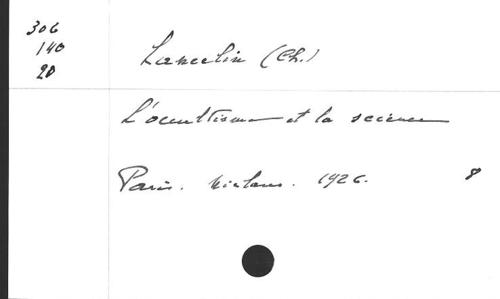 306
140
20
Lancelin (Ch.)
L'occultisme et la science
Paris. 1926. 8